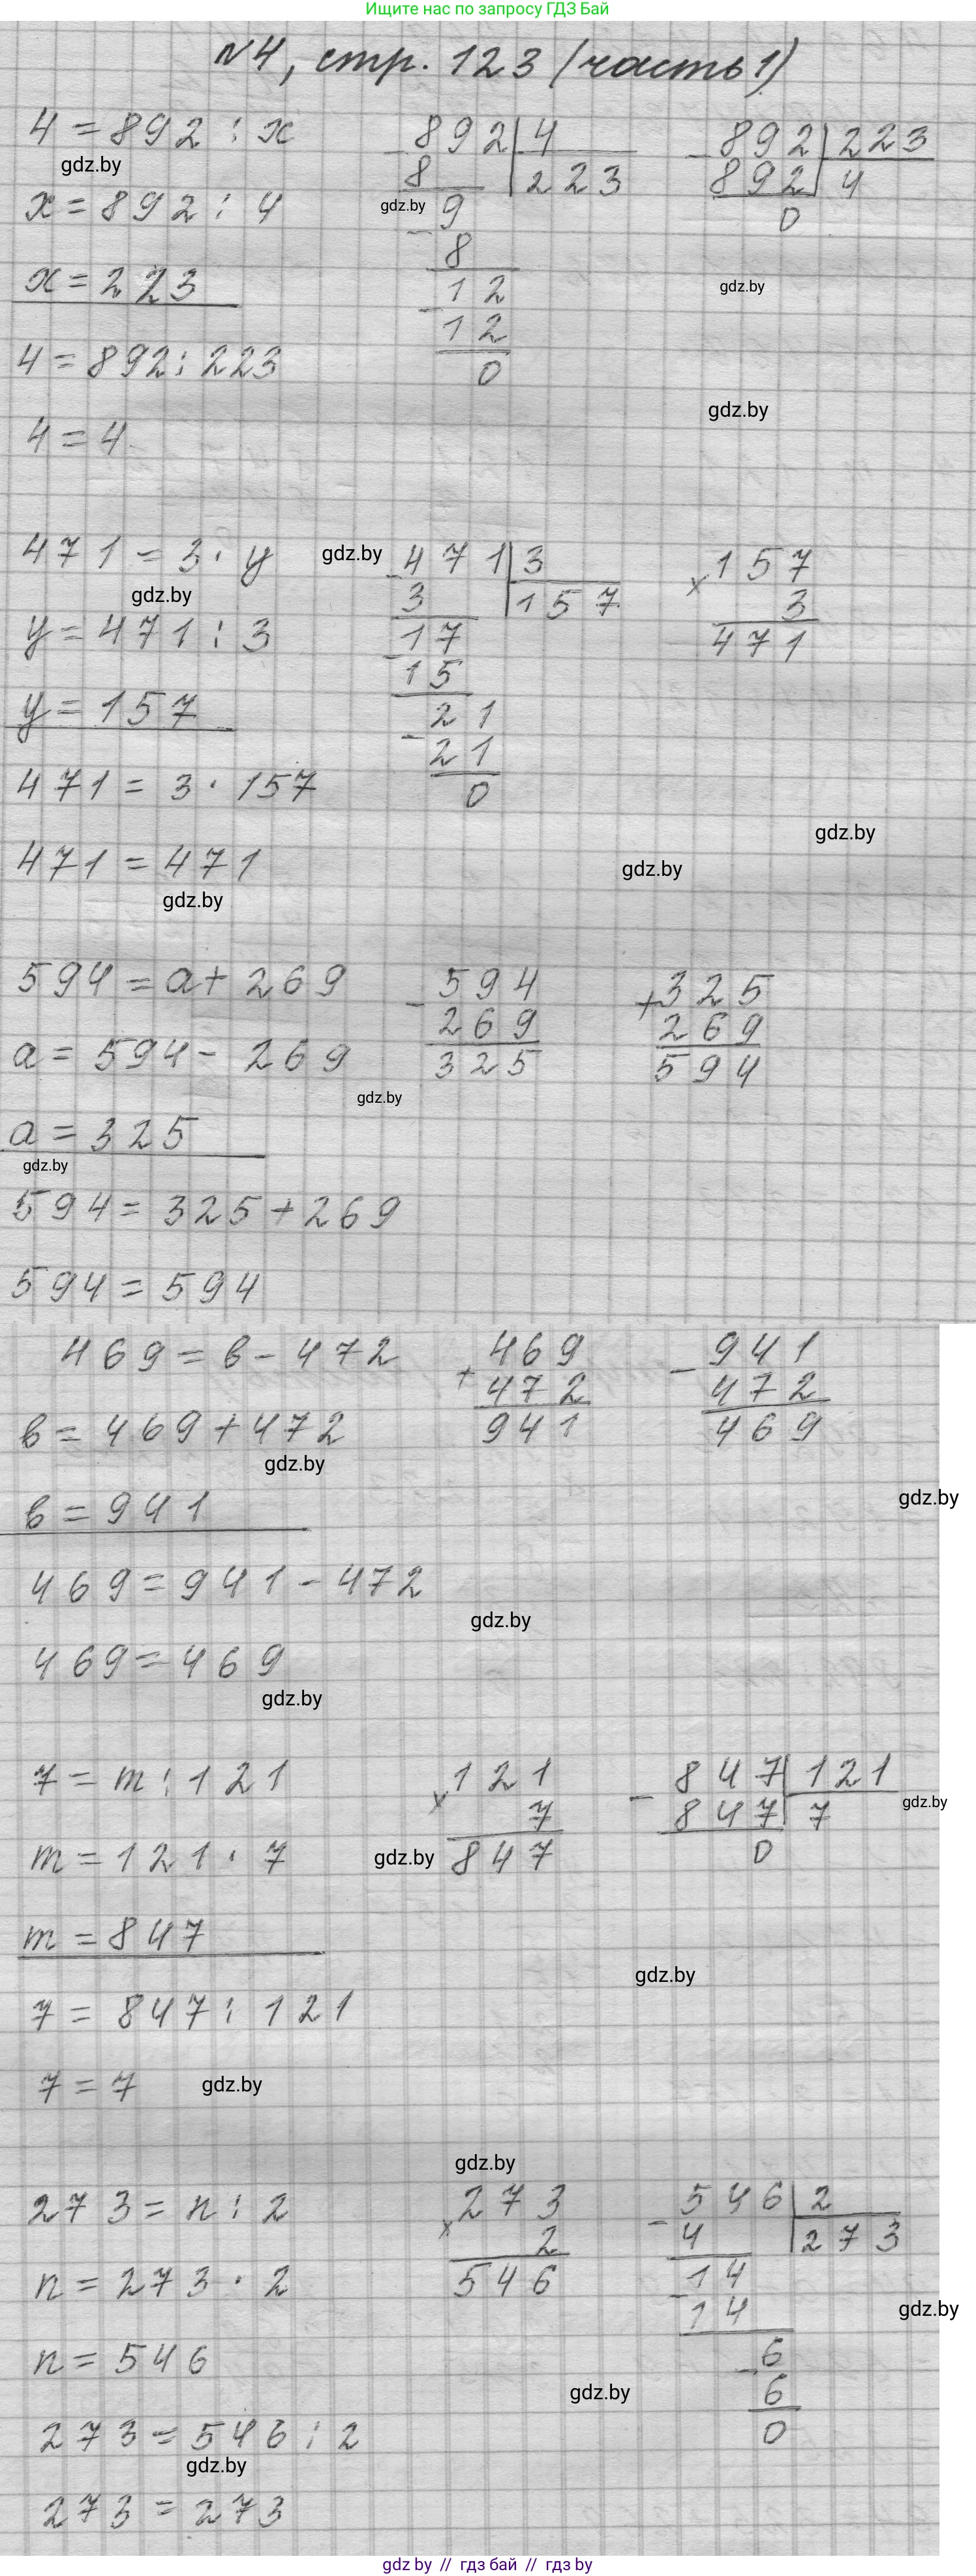 Ищите нас по запросу ГДЗ Бай
№4, стр. 123 (часть 1)
4 = 892 : x
gdz.by
x = 892 : 4
x = 223
4 = 892 : 223
4 = 4
892 | 4
8 | 223
gdz.by
9
8
12
12
0
892 | 223
892 | 4
0
gdz.by
gdz.by
471 = 3 · y
gdz.by
gdz.by
y = 471 : 3
y = 157
471 = 3 · 157
471 = 471
gdz.by
471 | 3
3 | 157
17
15
21
21
0
× 157
3
471
gdz.by
gdz.by
594 = a + 269
a = 594 - 269
gdz.by
a = 325
gdz.by
594 = 325 + 269
594 = 594
- 594
269
325
+ 325
269
594
469 = в - 472
в = 469 + 472
gdz.by
в = 941
469 = 941 - 472
gdz.by
469 = 469
gdz.by
+ 469
472
941
- 941
472
469
gdz.by
7 = m : 121
m = 121 · 7
m = 847
7 = 847 : 121
7 = 7
gdz.by
× 121
7
gdz.by
847
- 847 | 121
847 | 7
0
gdz.by
gdz.by
gdz.by
273 = n : 2
n = 273 · 2
n = 546
273 = 546 : 2
gdz.by
273 = 273
× 273
2
546
- 546 | 2
4 | 273
- 14
14
- 6
6
0
gdz.by
gdz.by
gdz by // гдз бай // гдз by